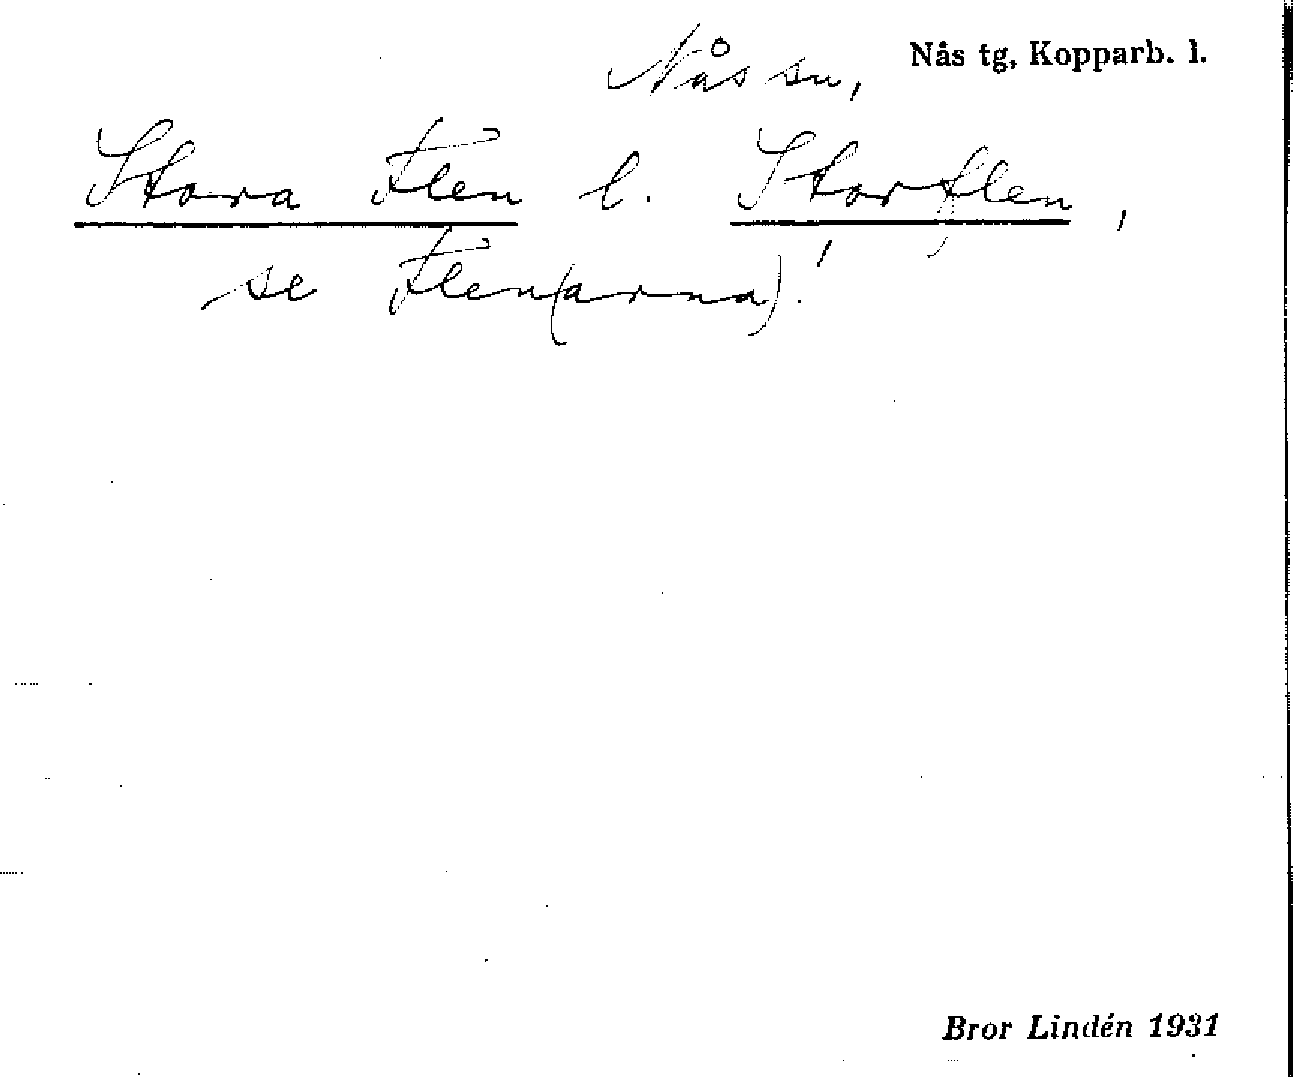 Nås sn, Nås tg, Kopparb. l.
Stora Flen l. Storflen,
se Flen(arna)!
Bror Lindén 1931